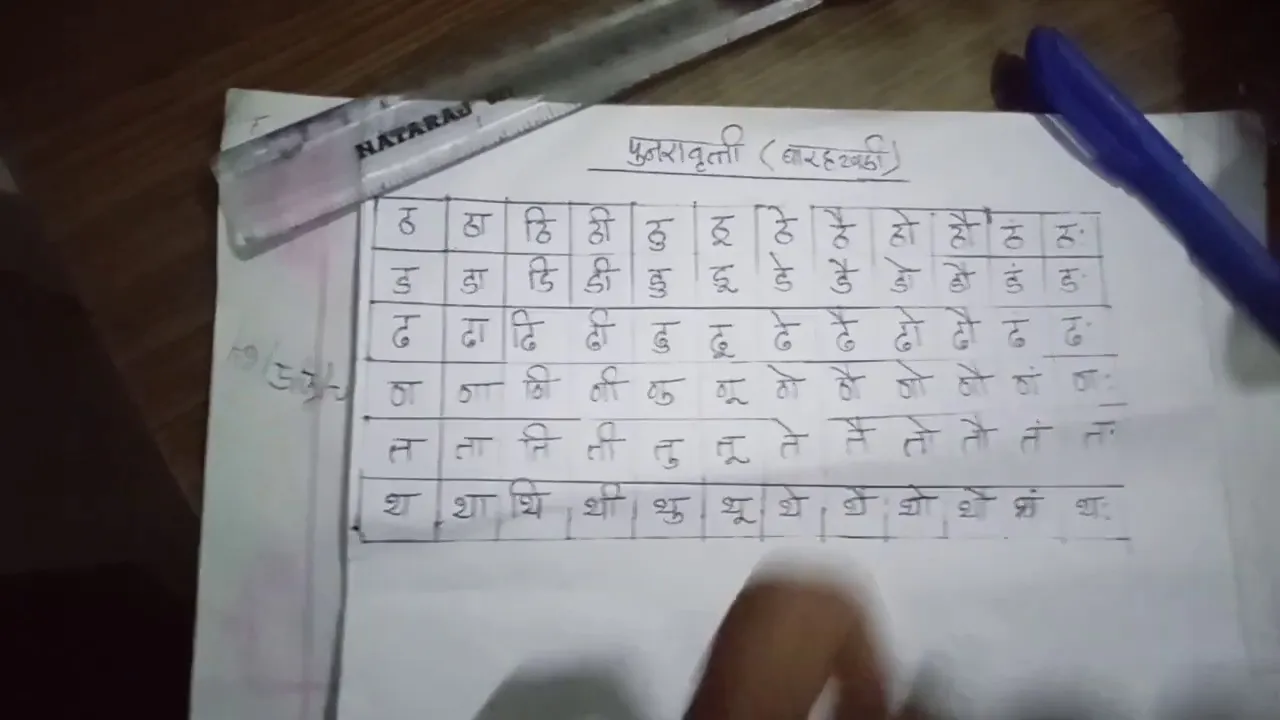 NATARAJ
पुनरावृत्ती (बारहखडी)
ठ ठा ठि ठी ठु ठू ठे ठै ठो ठौ ठं ठः
ड डा डि डी डु डू डे डै डो डौ डं डः
ढ ढा ढि ढी ढु ढू ढे ढै ढो ढौ ढ ढः
ण णा णि णी णु णू णे णै णो णौ णं णः
त ता ति ती तु तू ते तै तो तौ तं तः
थ था थि थी थु थू थे थै थो थौ थं थः